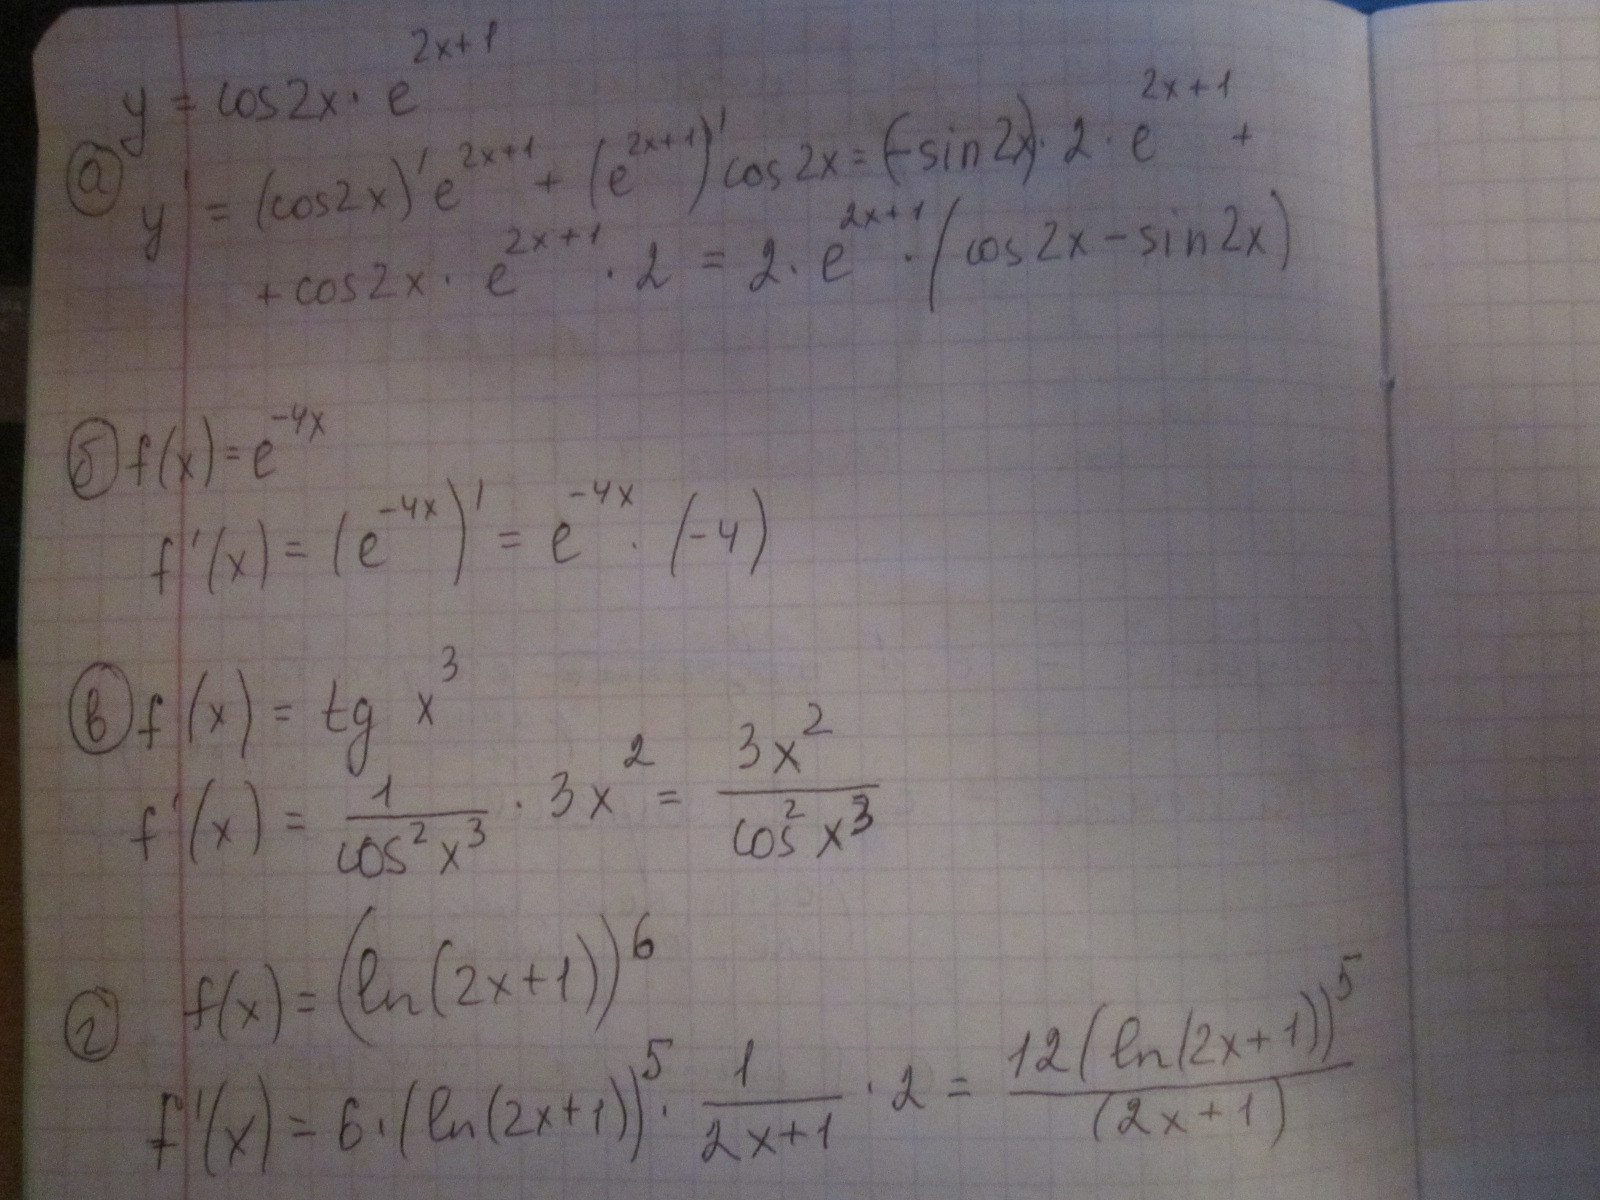 y = cos2x · e^{2x+1}
а) y' = (cos2x)' e^{2x+1} + (e^{2x+1})' cos2x = (-sin2x) · 2 · e^{2x+1} +
+ cos2x · e^{2x+1} · 2 = 2 · e^{2x+1} · (cos2x - sin2x)
б) f(x) = e^{-4x}
f'(x) = (e^{-4x})' = e^{-4x} · (-4)
в) f(x) = tg x^3
f'(x) = \frac{1}{cos^2 x^3} · 3x^2 = \frac{3x^2}{cos^2 x^3}
г) f(x) = (ln(2x+1))^6
f'(x) = 6 · (ln(2x+1))^5 · \frac{1}{2x+1} · 2 = \frac{12(ln(2x+1))^5}{(2x+1)}